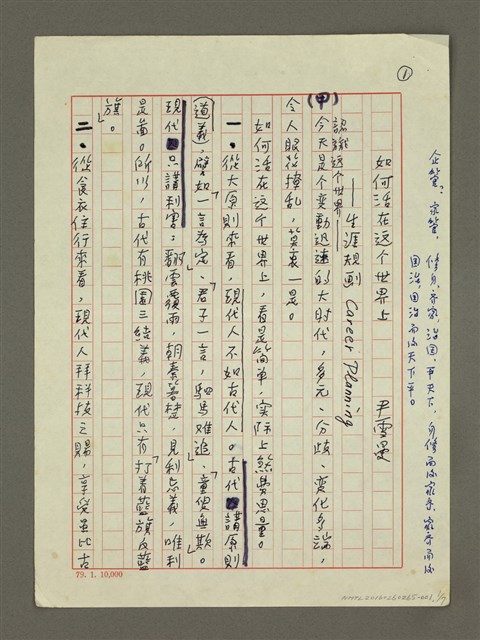 ①
企管、家管，修身、齊家、治国、平天下，身修而後家齊，家齊而後
国治，国治而後天下平。
如何活在这个世界上　尹雪曼
——生涯規劃 Career Planning
(甲)認識这个世界
今天是个变動迅速的大时代，多元、分歧、变化多端，
令人眼花撩乱，莫衷一是。
如何活在这个世界上，看是简单，实际上煞费思量。
一、從大原則來看，現代人不如古代人。古代講原則
(道義)，譬如「一言為定」、「君子一言，駟馬难追」、「童叟無欺」。
現代只講利害：翻雲覆雨，朝秦暮楚，見利忘義，唯利
是啚。所以，古代有桃園三結義，現代只有「打着藍旗反藍
旗」。
二、從食衣住行來看，現代人拜科技之賜，享受虽比古
79. 1. 10,000